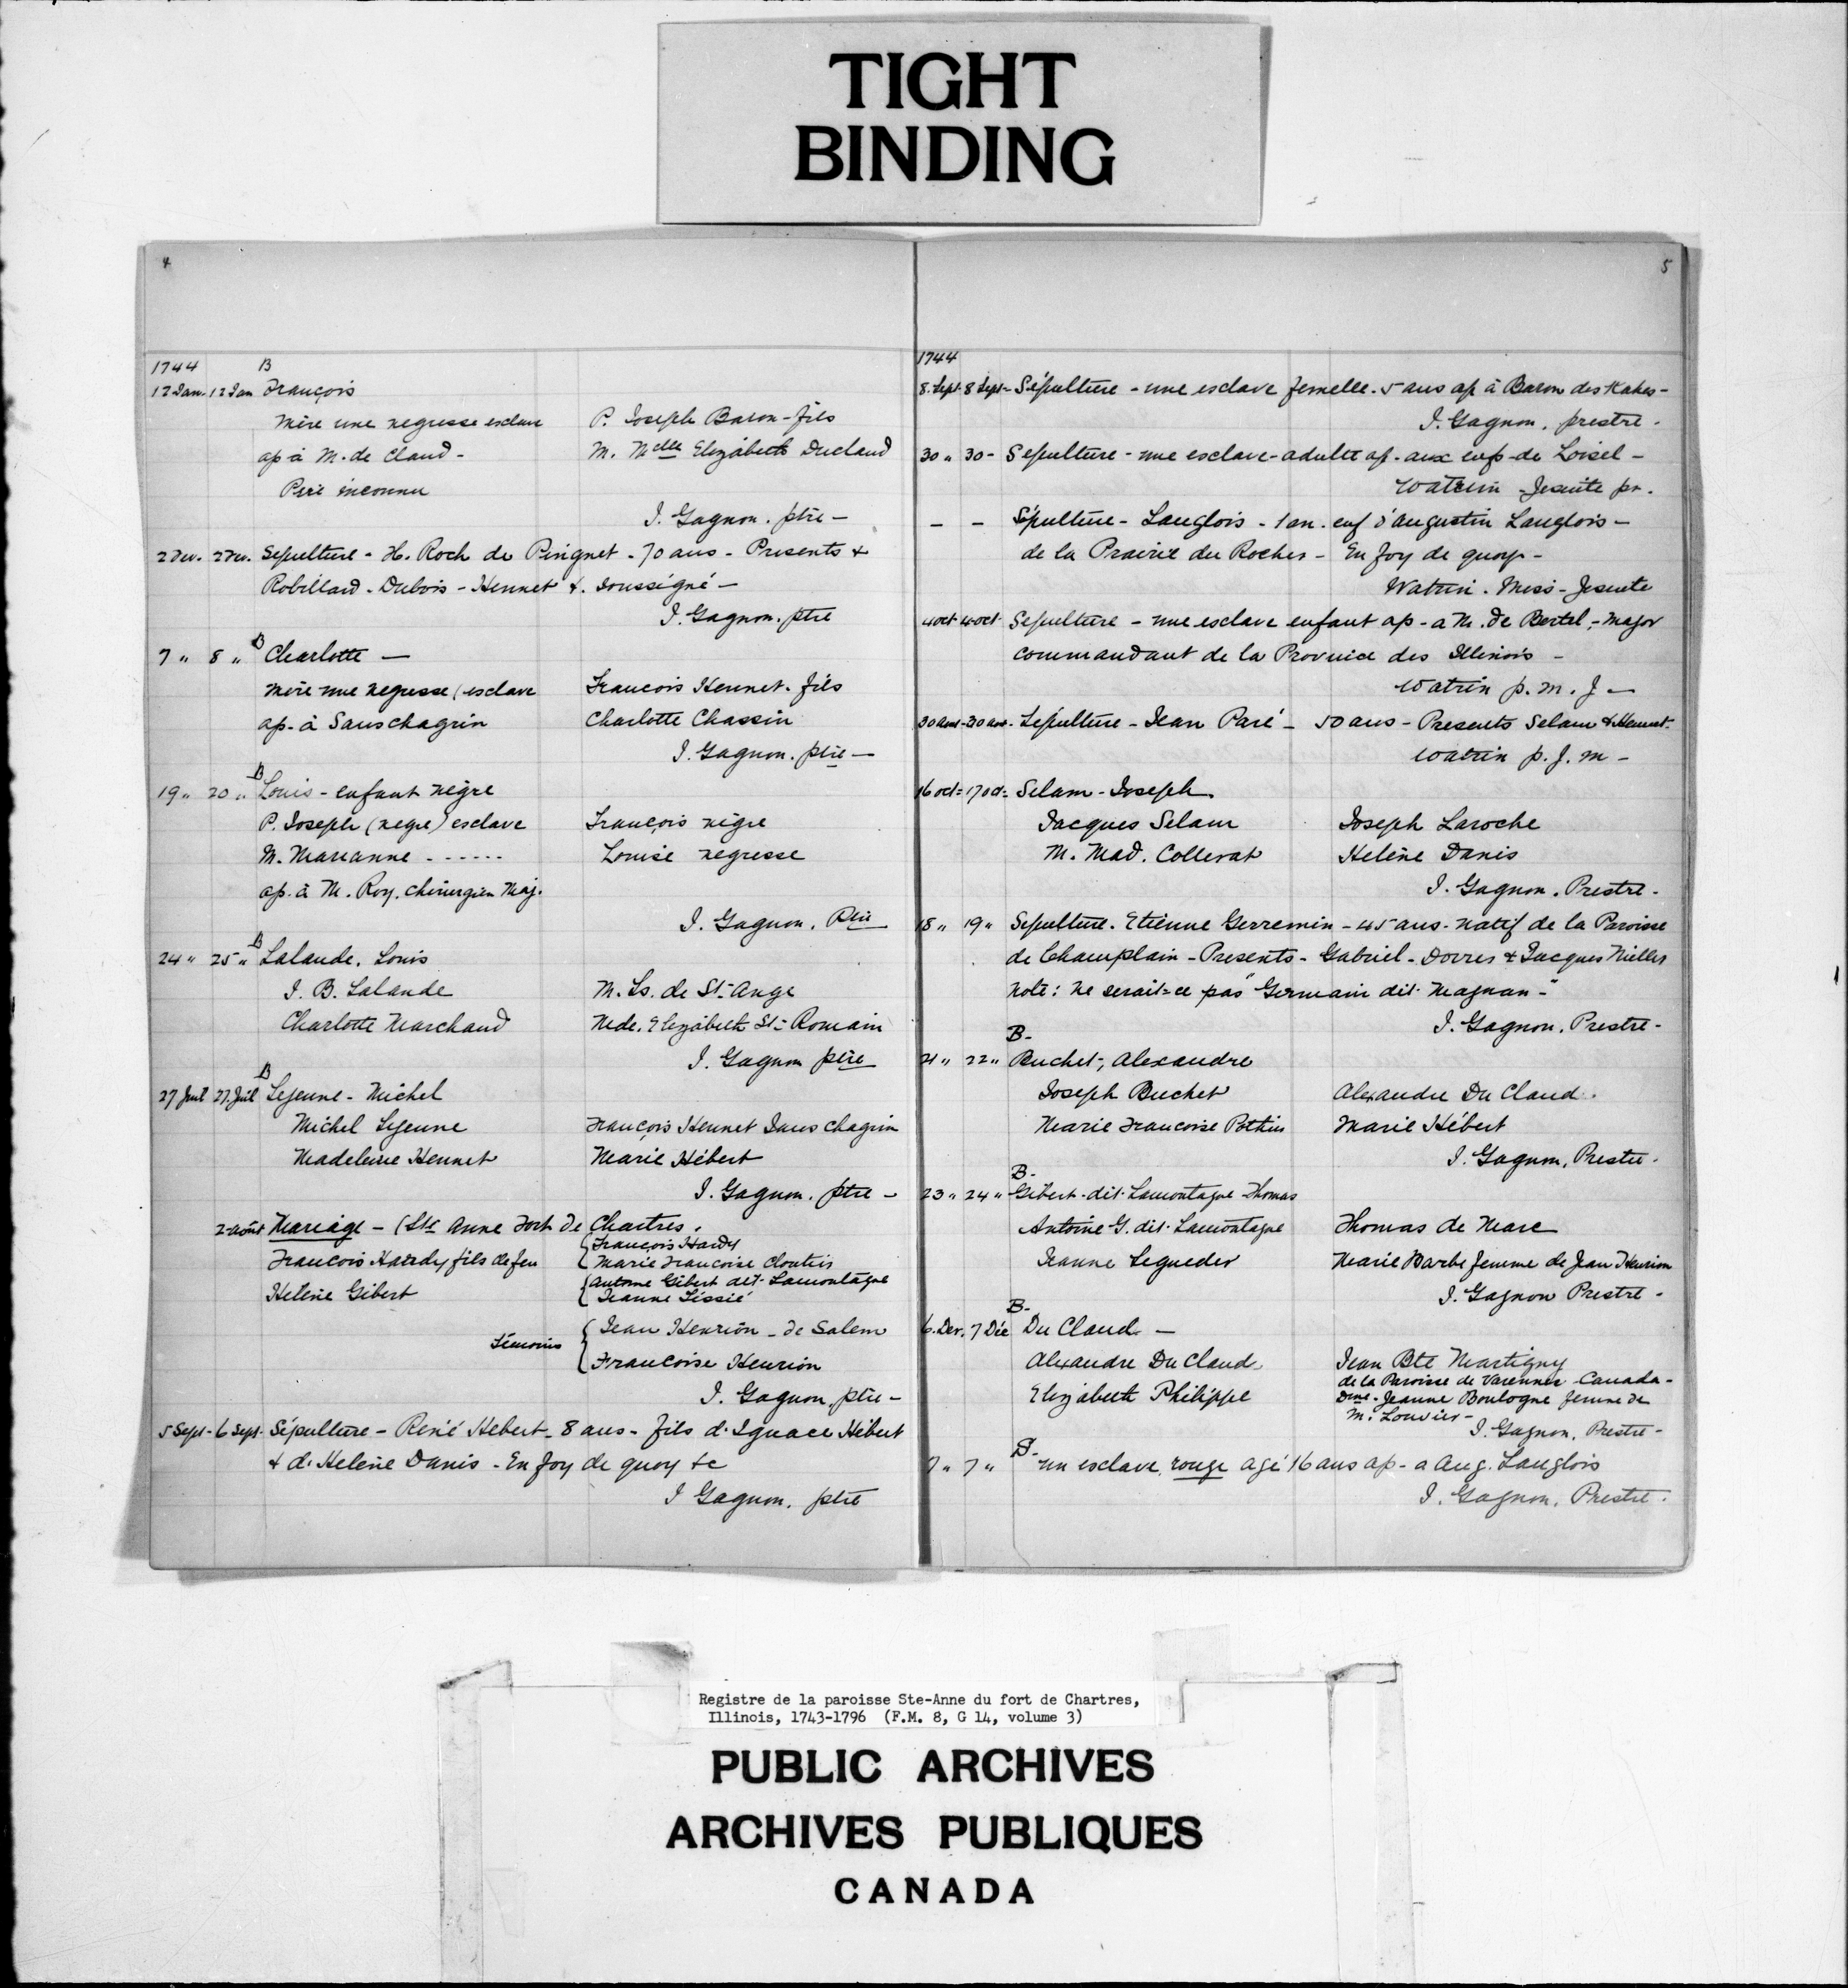 TIGHT
BINDING
4
1744 B
12 Jan. 12 Jan François
mère une negresse esclave P. Joseph Baron - fils
ap à M. de Claud - M. Melle Elizabeth Ducland
Père inconnu
J. Gagnon. ptre -
2 Dec. 2 Dec. Sepulture - H. Roch de Pingnet - 70 ans - Presents &
Robillard - Dubois - Hennet &. Soussigné -
J. Gagnon. ptre
7 " 8 " B Charlotte -
mère une negresse (esclave Francois Hennet. fils
ap. à Sanschagrin Charlotte Chassin
J. Gagnon. ptre -
B
19 " 20 " Louis - enfant nègre
P. Joseph (negre) esclave François nègre
M. Marianne - - - - - - Louise negresse
ap. à M. Roy. chirurgien Maj.
J. Gagnon. Ptre
B
24 " 25 " Lalande. Louis
J. B. Lalande M. Ls. de St-Ange
Charlotte Marchand Mde. Elizabeth St- Romain
J. Gagnon ptre
B
27 Juil 27. Juil Lejeune - Michel
Michel Lejeune François Hennet Sans chagrin
Madeleine Hennet Marie Hébert
J. Gagnon. ptre -
2 août Mariage - (Ste Anne Fort de Chartres.
{ François Hardy
Francois Hardy fils de feu { Marie Francoise Cloutier
{ Antoine Gibert dit- Lamontagne
Helène Gibert { Jeanne Séssié
Témoins { Jean Henrion - de Salem
{ Francoise Henrion
J. Gagnon, ptre -
5 Sept - 6 Sept. Sépulture - René Hebert - 8 ans - fils d. Ignace Hébert
& d. Helène Danis - En foy de quoy &c
J Gagnon. ptre
5
1744
8. Sept. 8 Sept - Sépulture - une esclave femelle. 5 ans ap à Baron des Kakos -
J. Gagnon. prestre -
30 " 30 - Sepulture - une esclave - adulte ap. aux enfs - de Loisel -
Watrin - Jesuite pr.
- - Sépulture - Langlois - 1 an. enf d'Augustin Langlois -
de la Prairie du Rocher - En foy de quoy -
Watrin. Miss - Jesuite
4 oct. 4 oct. Sepulture - une esclave enfant ap - a M. de Bertel, - Major
commandant de la Province des Illinois -
Watrin p. m. J -
30 aout - 30 aou. Sépulture - Jean Paré - 50 ans - Presents Selam & Hennet.
Watrin p. J. m -
16 oct = 17 oct = Selam - Joseph.
Jacques Selam Joseph Laroche
M. Mad. Collerat Helène Danis
J. Gagnon. Prestre -
18 " 19 " Sepulture. Etienne Gerremin - 45 ans. natif de la Paroisse
de Champlain - Presents - Gabriel - Dorres & Jacques Millet
Note: Ne serait-ce pas "Germain dit- Magnan -"
J. Gagnon. Prestre -
B -
21 " 22 " Buchet -, Alexandre
Joseph Buchet Alexandre Du Claud.
Marie Francoise Pothier Marie Hébert
J. Gagnon, Prestre -
B -
23 " 24 " Gibert - dit - Lamontagne Thomas
Antoine G. dit. Lamontagne Thomas de Marc
Jeanne Legueder Marie Barbe femme de Jean Henrion
J. Gagnon Prestre -
B -
6. Dec. 7 Déc Du Claud -
Alexandre Du Claud Jean Bte Martigny
de la Paroisse de Varennes - Canada -
Elizabeth Philippe Dme - Jeanne Boulogne femme de
M. Louvier -
J. Gagnon, Prestre -
S -
7 " 7 " un esclave rouge agé 16 ans ap - a Aug. Langlois
J. Gagnon, Prestre.
Registre de la paroisse Ste-Anne du fort de Chartres,
Illinois, 1743-1796 (F.M. 8, G 14, volume 3)
PUBLIC ARCHIVES
ARCHIVES PUBLIQUES
CANADA